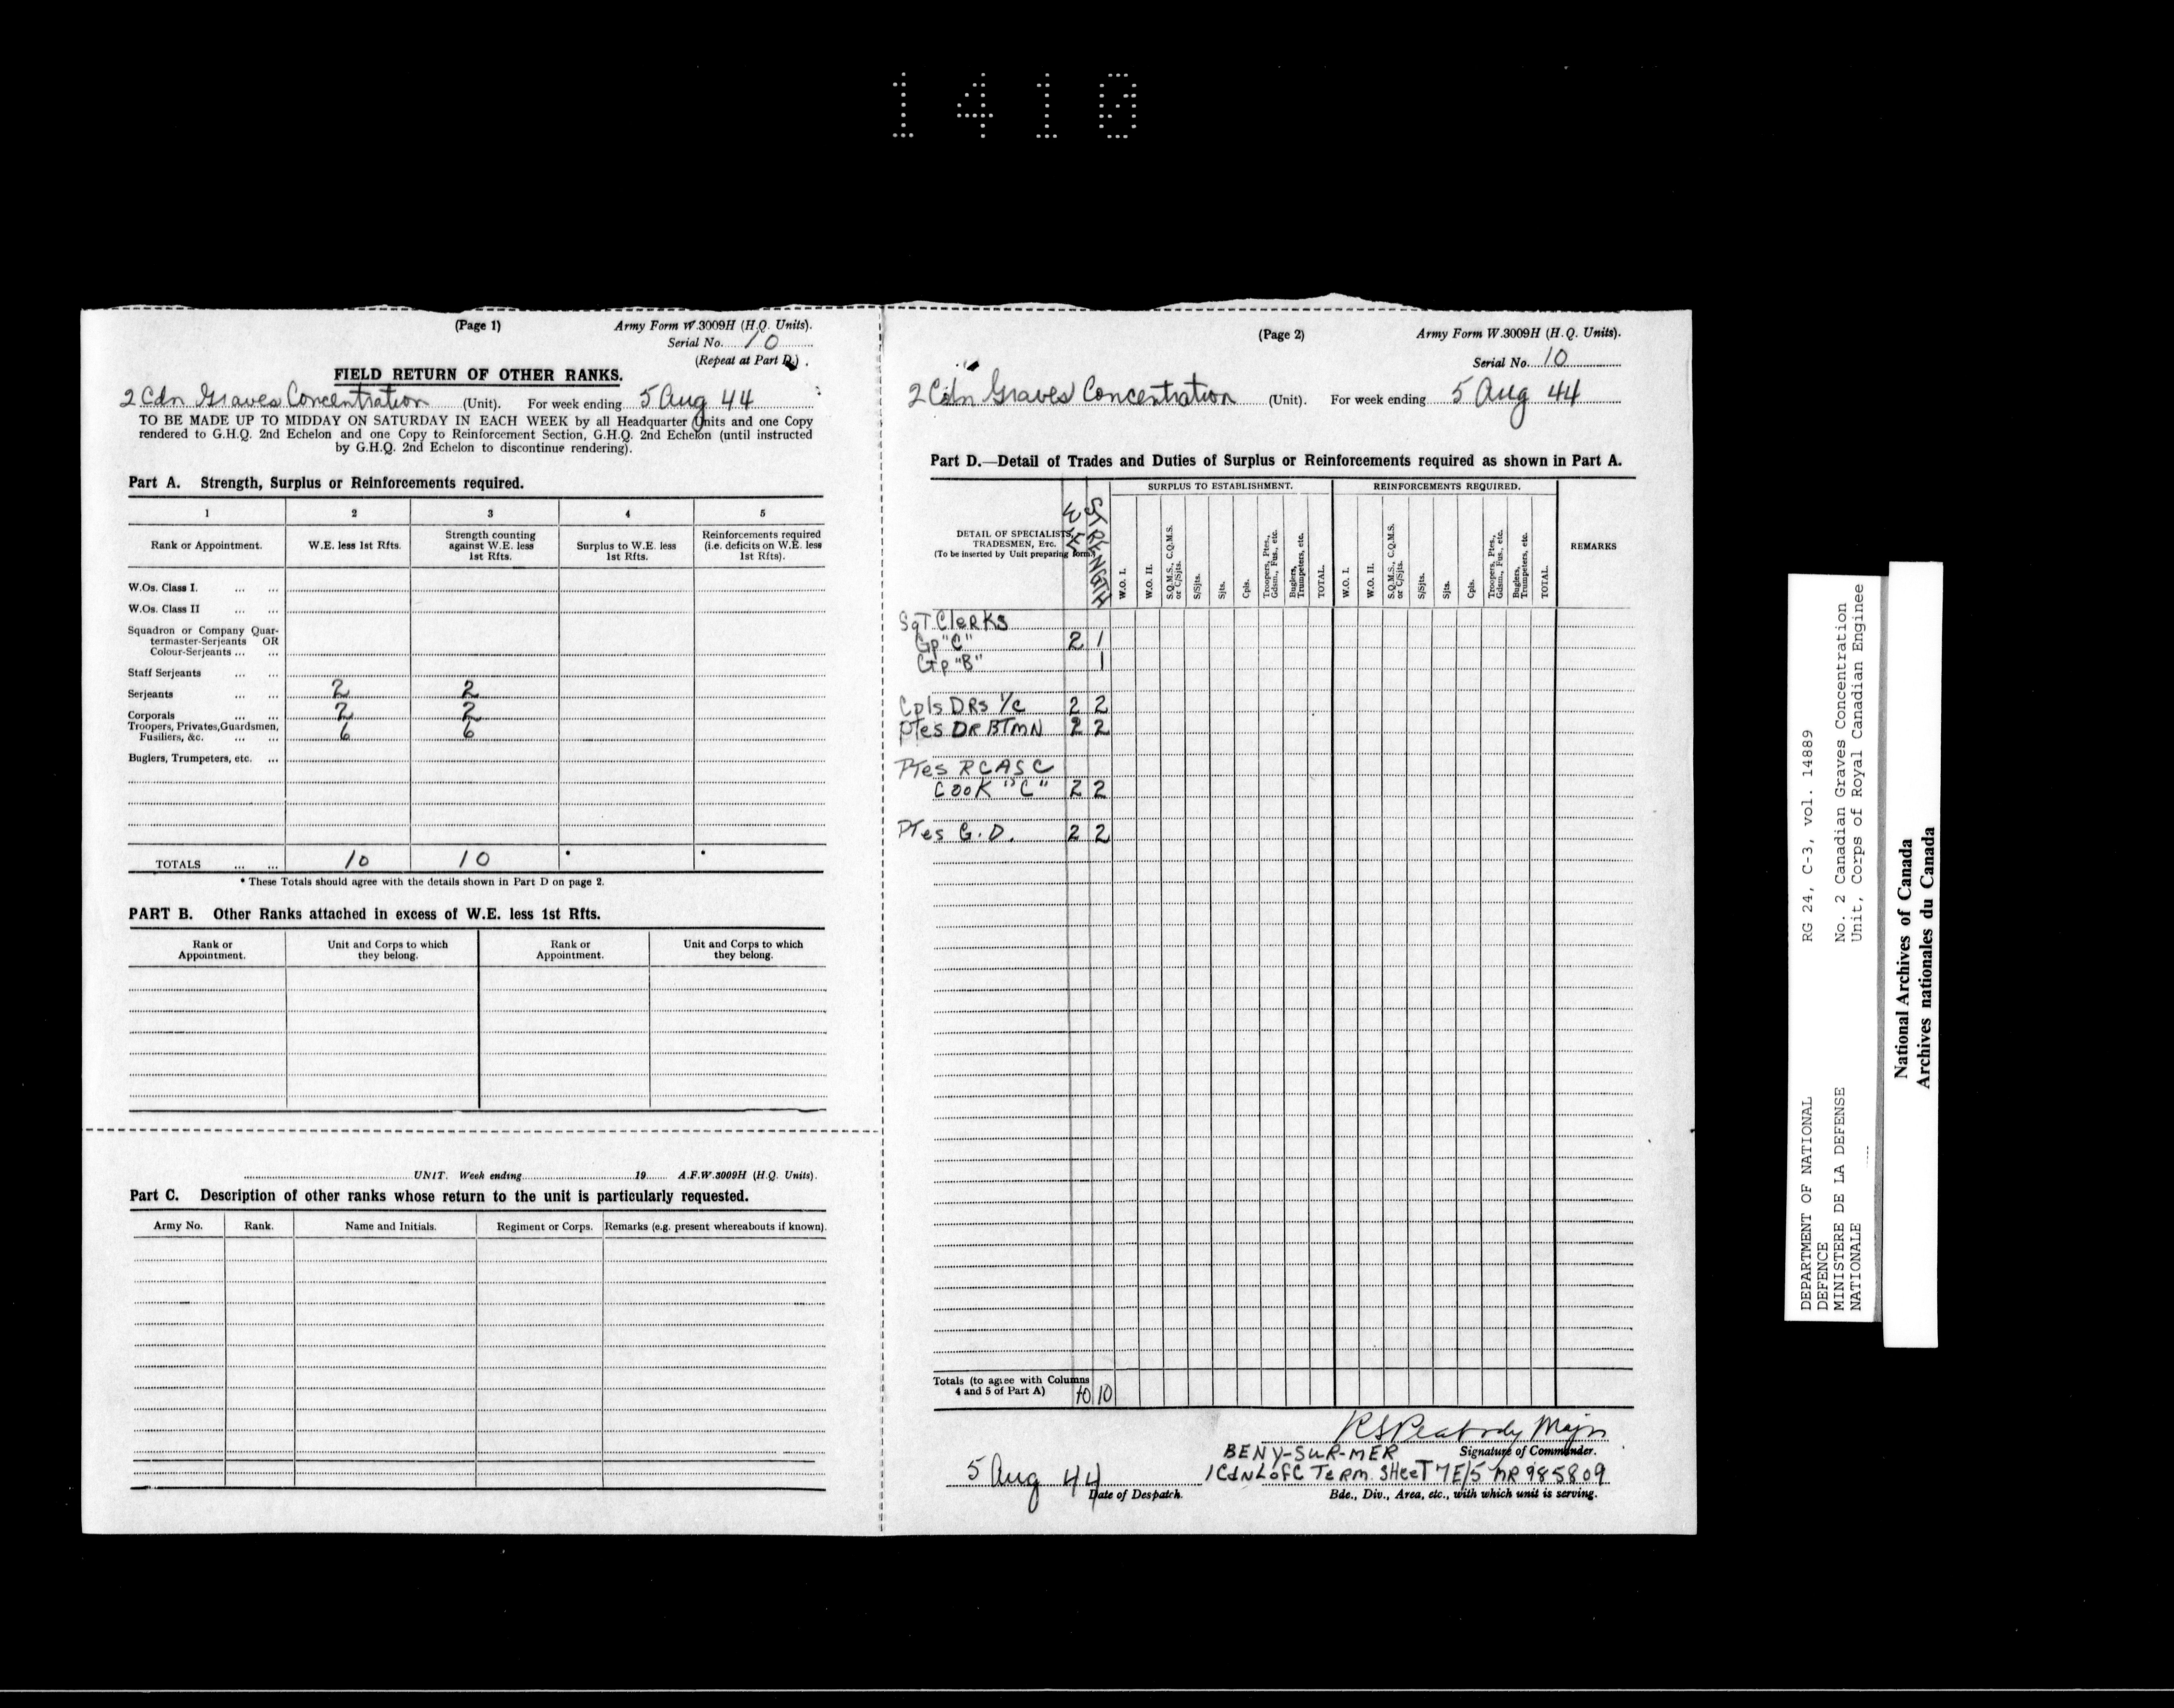 1410
(Page 1) Army Form W.3009H (H.Q. Units).
Serial No. 10
(Repeat at Part D.)
FIELD RETURN OF OTHER RANKS.
2 Cdn Graves Concentration (Unit). For week ending 5 Aug 44
TO BE MADE UP TO MIDDAY ON SATURDAY IN EACH WEEK by all Headquarter Units and one Copy
rendered to G.H.Q. 2nd Echelon and one Copy to Reinforcement Section, G.H.Q. 2nd Echelon (until instructed
by G.H.Q. 2nd Echelon to discontinue rendering).
Part A. Strength, Surplus or Reinforcements required.
1 2 3 4 5
Rank or Appointment. W.E. less 1st Rfts. Strength counting against W.E. less 1st Rfts. Surplus to W.E. less 1st Rfts. Reinforcements required (i.e. deficits on W.E. less 1st Rfts).
W.Os. Class I. ... ...
W.Os. Class II ... ...
Squadron or Company Quar-
termaster-Serjeants OR
Colour-Serjeants ... ...
Staff Serjeants ... ...
Serjeants ... ... 2 2
Corporals ... ... 2 2
Troopers, Privates, Guardsmen,
Fusiliers, &c. ... ... 6 6
Buglers, Trumpeters, etc. ...
TOTALS ... ... 10 10 * *
* These Totals should agree with the details shown in Part D on page 2.
PART B. Other Ranks attached in excess of W.E. less 1st Rfts.
Rank or Appointment. Unit and Corps to which they belong. Rank or Appointment. Unit and Corps to which they belong.
UNIT. Week ending 19 A.F.W.3009H (H.Q. Units).
Part C. Description of other ranks whose return to the unit is particularly requested.
Army No. Rank. Name and Initials. Regiment or Corps. Remarks (e.g. present whereabouts if known).
(Page 2) Army Form W.3009H (H.Q. Units).
Serial No. 10
2 Cdn Graves Concentration (Unit). For week ending 5 Aug 44
Part D.—Detail of Trades and Duties of Surplus or Reinforcements required as shown in Part A.
SURPLUS TO ESTABLISHMENT. REINFORCEMENTS REQUIRED.
DETAIL OF SPECIALISTS,
TRADESMEN, ETC.
(To be inserted by Unit preparing form)
W E
STRENGTH
W.O. I.
W.O. II.
S.Q.M.S., C.Q.M.S. or C/Sjts.
S/Sjts.
Sjts.
Cpls.
Troopers, Ptes., Gdsm., Fus., etc.
Buglers, Trumpeters, etc.
TOTAL.
W.O. I.
W.O. II.
S.Q.M.S., C.Q.M.S. or C/Sjts.
S/Sjts.
Sjts.
Cpls.
Troopers, Ptes., Gdsm., Fus., etc.
Buglers, Trumpeters, etc.
TOTAL.
REMARKS
SgT Clerks
Gp "C" 2 1
Gp "B" 1
Cpls DRs I/C 2 2
Ptes DR BTMN 2 2
Ptes RCASC
Cook "C" 2 2
Ptes G.D. 2 2
Totals (to agree with Columns
4 and 5 of Part A) 10 10
R S Peabody Major
Signature of Commander.
BENY-SUR-MER
1 Cdn L of C Term. SHeeT 7E/5 MR 985809
5 Aug 44
Date of Despatch.
Bde., Div., Area, etc., with which unit is serving.
DEPARTMENT OF NATIONAL RG 24, C-3, vol. 14889
DEFENCE
MINISTERE DE LA DEFENSE No. 2 Canadian Graves Concentration
NATIONALE Unit, Corps of Royal Canadian Enginee
National Archives of Canada
Archives nationales du Canada